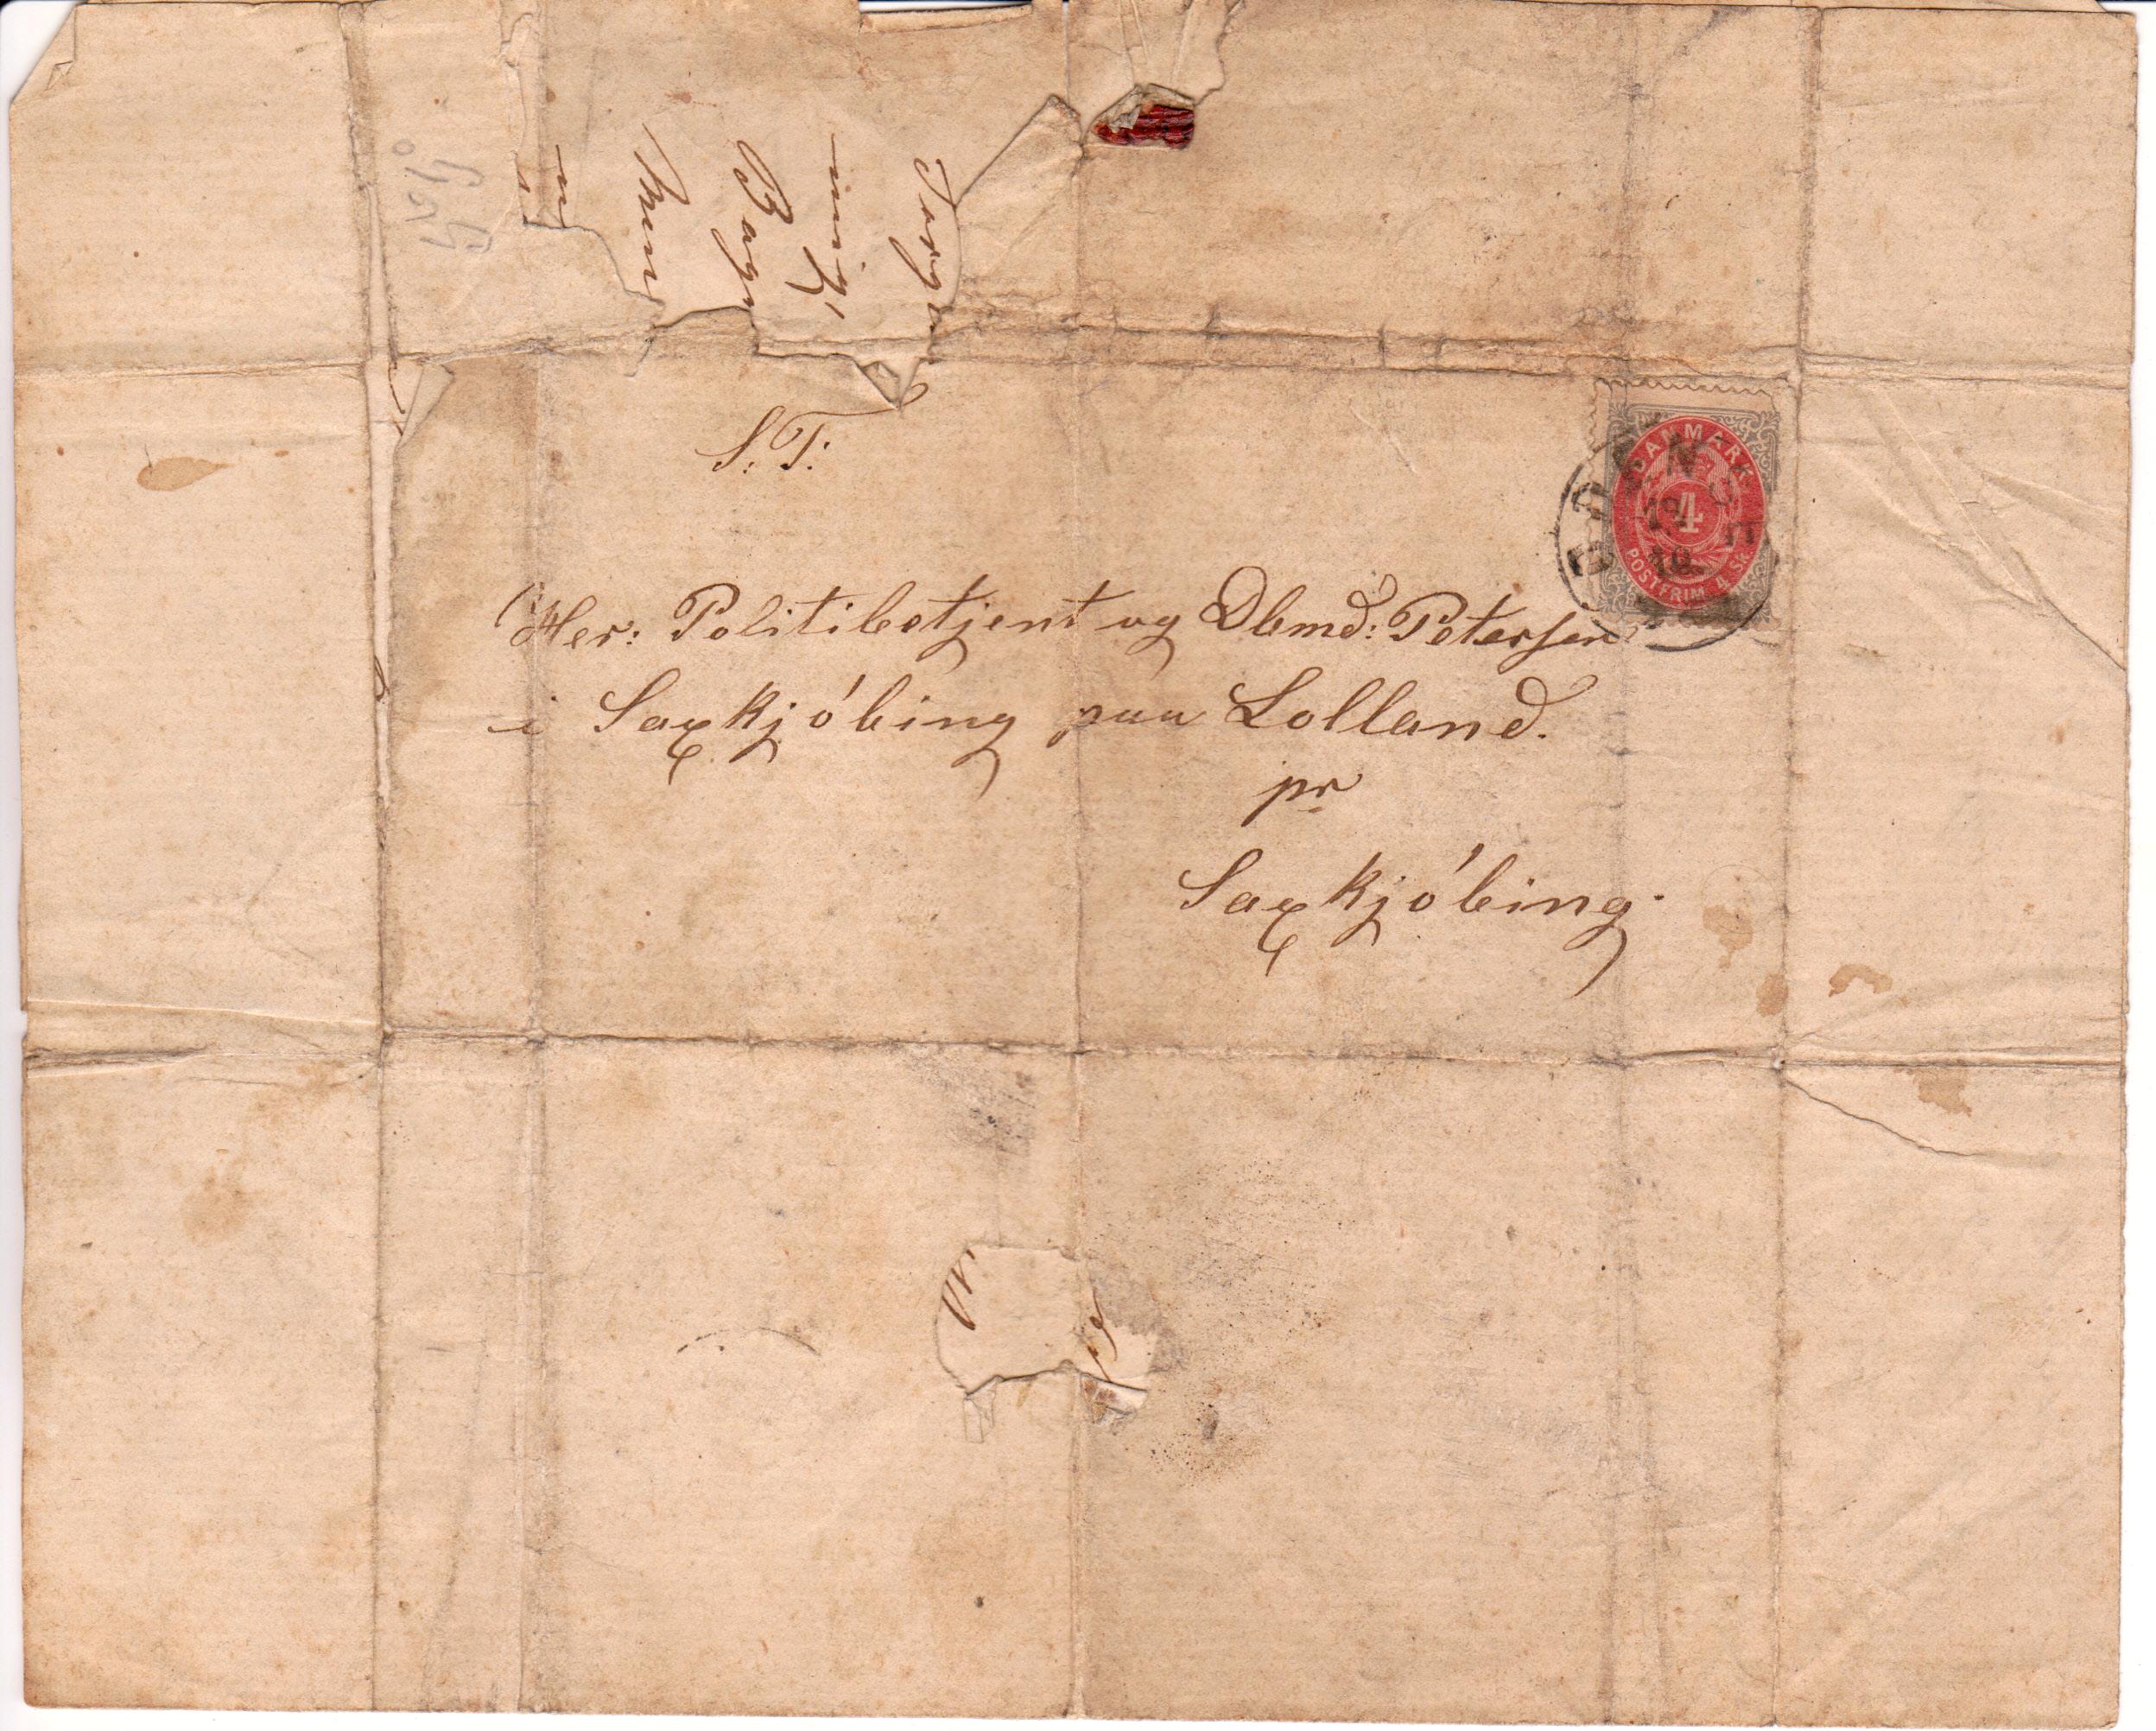 S. T:
Her: Politibetjent og Dbmd: Petersen
i Saxkjóbing paa Lolland.
pr
Saxkjóbing.
DANMARK
4
POSTFRIM. 4 SK.
ODENSE
19
10